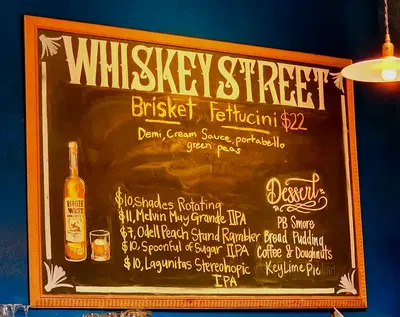 WHISKEY STREET
Brisket, Fettucini $22
Demi, Cream Sauce, portabello
green peas
$10, Shades Rotating
$11, Melvin Muy Grande IIPA
$7, Odell Peach Stand Rambler
$10, Spoonful of Sugar IIPA
$10, Lagunitas Stereohopic
IPA
Dessert
PB Smore
Bread Pudding
Coffee & Doughnuts
Key Lime Pie